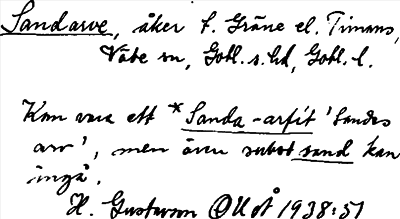 Sandarve, åker t. Gräne el. Timans,
Väte sn, Gotl. s. hd, Gotl. l.
Kan vara ett *Sanda-arfit 'Sandes
arv', men även subst sand kan
ingå.
H. Gustavson OUÅ 1938:51